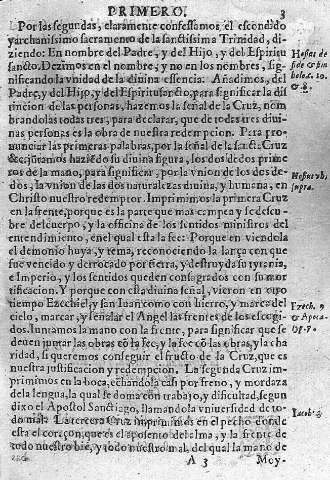 PRIMERO. 3
Por las segundas, claramente confessamos, el escondido
y archanissimo sacramento de la sanctissima Trinidad, di
ziendo: En nombre del Padre, y del Hijo, y del Espiritu
sancto. Dezimos en el nombre, y no en los nombres, sig-
nificando la vnidad de la diuina essencia. Añadimos, del
Padre, y del Hijo, y del Espiritu sancto, para significar la di
stincion de las personas, hazemos la señal de la Cruz, nom
brandolas todas tres, para declarar, que de todas tres diui
nas personas es la obra de nuestra redempcion. Para pro-
nunciar las primeras palabras, por la señal de la sancta Cruz
&c. juramos haziẽdo su diuina figura, los dos dedos prime
ros de la mano, para significar, por la vnion de los dos de-
dos, la vnion de las dos naturalezas diuina, y humana, en
Christo nuestro redemptor. Imprimimos la primera Cruz
en la frente, porque es la parte que mas campea y se descu-
bre del cuerpo, y la officina de los sentidos ministros del
entendimiento, en el qual esta la fee: Porque en viendola
el demonio huya, y tema, reconociendo la lança con que
fue vencido y derrocado por tierra, y destruyda su tyrania,
e imperio, y los sentidos queden consagrados con su mor
tificacion. Y porque con esta diuina señal, vieron en otro
tiempo Ezechiel, y san Iuan como con hierro, y marca del
cielo, marcar, y señalar el Angel las frentes de los escogi-
dos. Iuntamos la mano con la frente, para significar que se
deuen juntar las obras cõ la fee, y la fee cõ las obras, y la cha
ridad, si queremos conseguir el fructo de la Cruz, que es
nuestra justificacion y redempcion. La segunda Cruz im-
primimos en la boca, echandola casi por freno, y mordaza
de la lengua, la qual se doma con trabajo, y difficultad, segun
dixo el Apostol Sanctiago, llamandola vniuersidad de to-
do mal. La tercera Cruz imprimimos en el pecho donde
esta el coraçon, que es el aposento del alma, y la fuente de
todo nuestro bie, y todo nuestro mal, del qual la mano de
A 3 Moy-
Hosius de
fide &
bolo. c. 10.
& 8.
Hosius vb,
supra.
Ezech. 9
& Apoca-
Iacob. 3